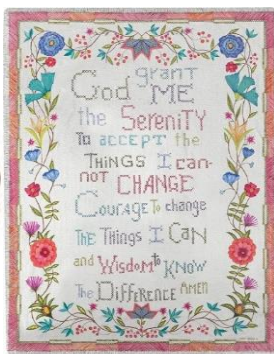 God grant
ME
the SERENITY
To ACCEPT the
THINGS I can-
not CHANGE
Courage To change
THE THings I CAN
and WisDOM to KNOW
The DIFFERENCE AMEN